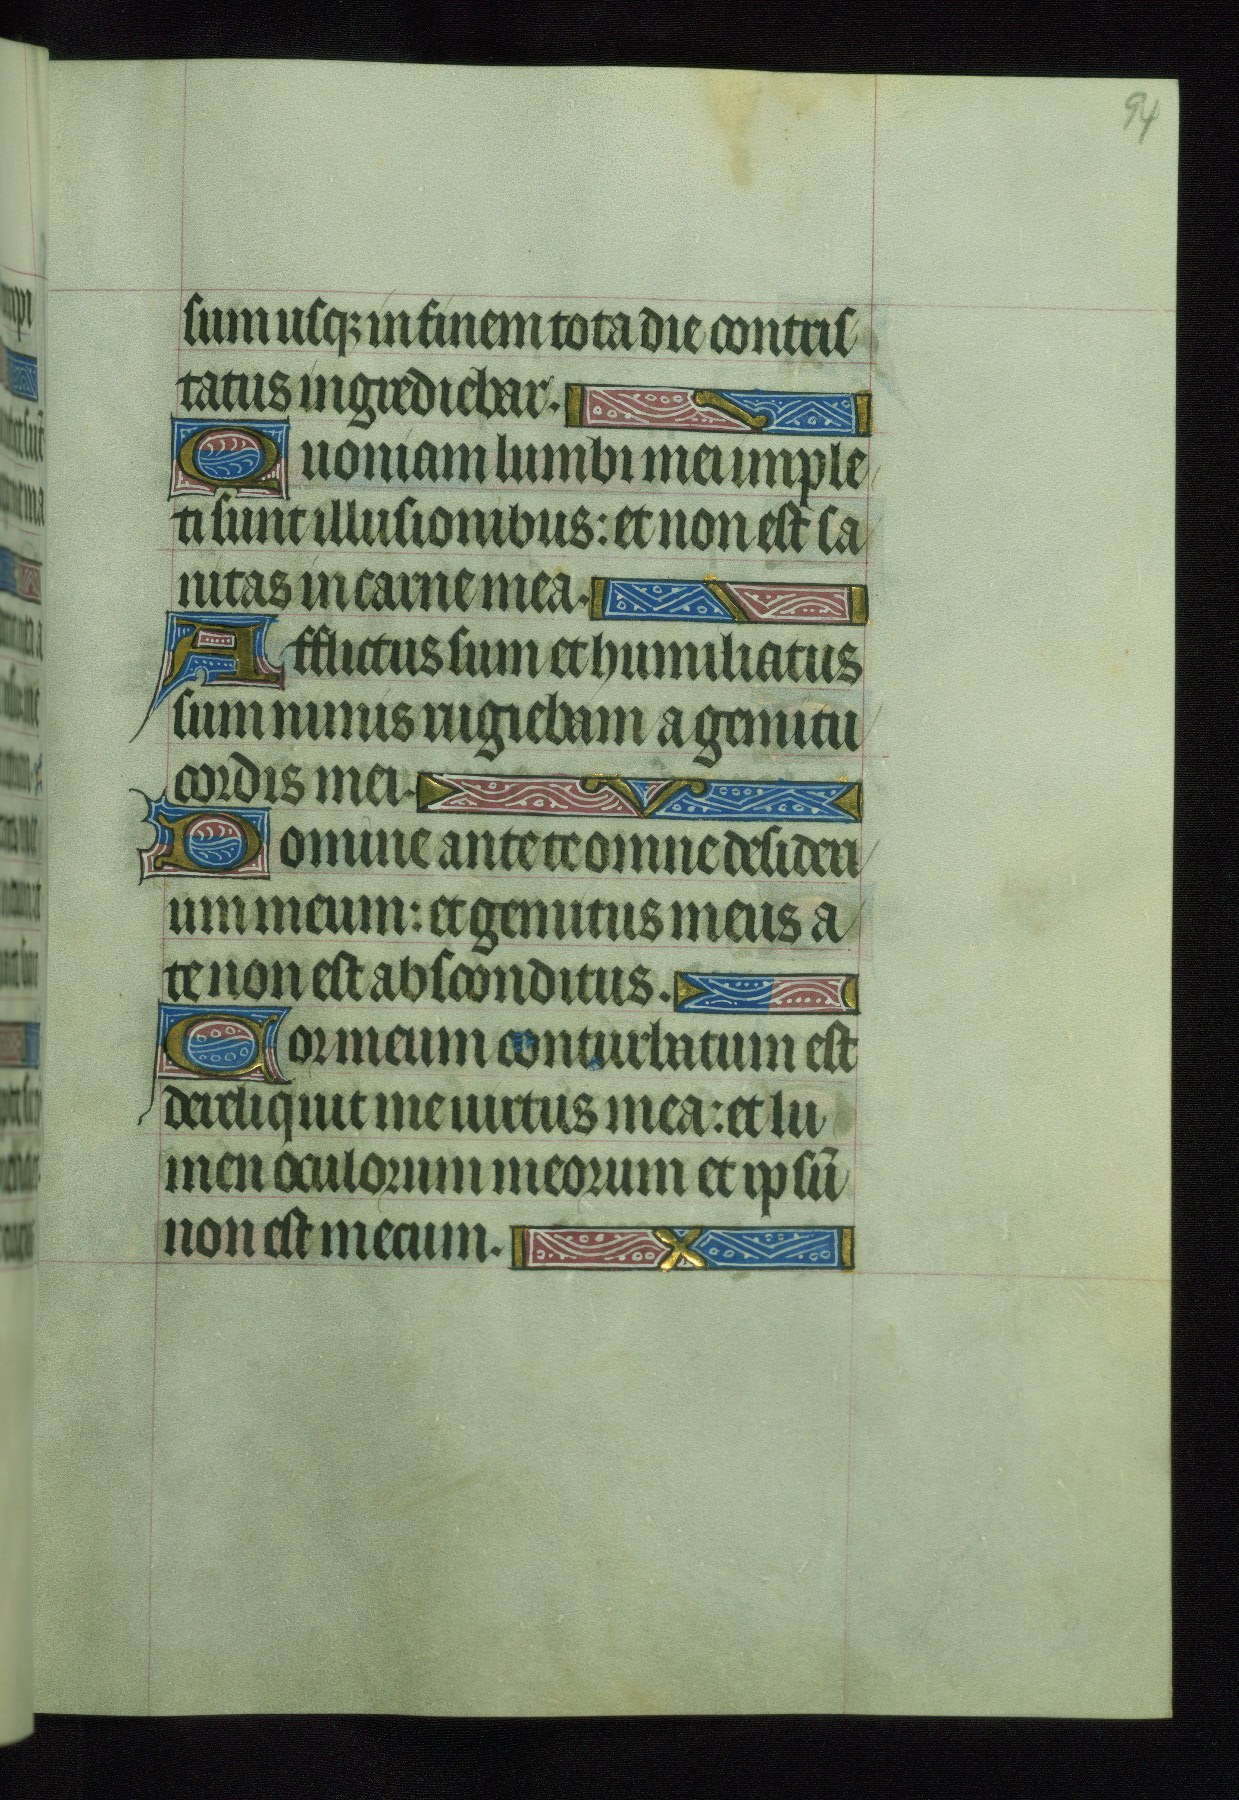 94
sum usq; in finem tota die contris
tatus ingrediebar.
Quoniam lumbi mei imple
ti sunt illusionibus: et non est sa
nitas in carne mea.
Afflictus sum et humiliatus
sum nimis rugiebam a gemitu
cordis mei.
Domine ante te omne desideri
um meum: et gemitus meus a
te non est absconditus.
Cor meum conturbatum est
dereliquit me uirtus mea: et lu
men oculorum meorum et ipsū
non est mecum.